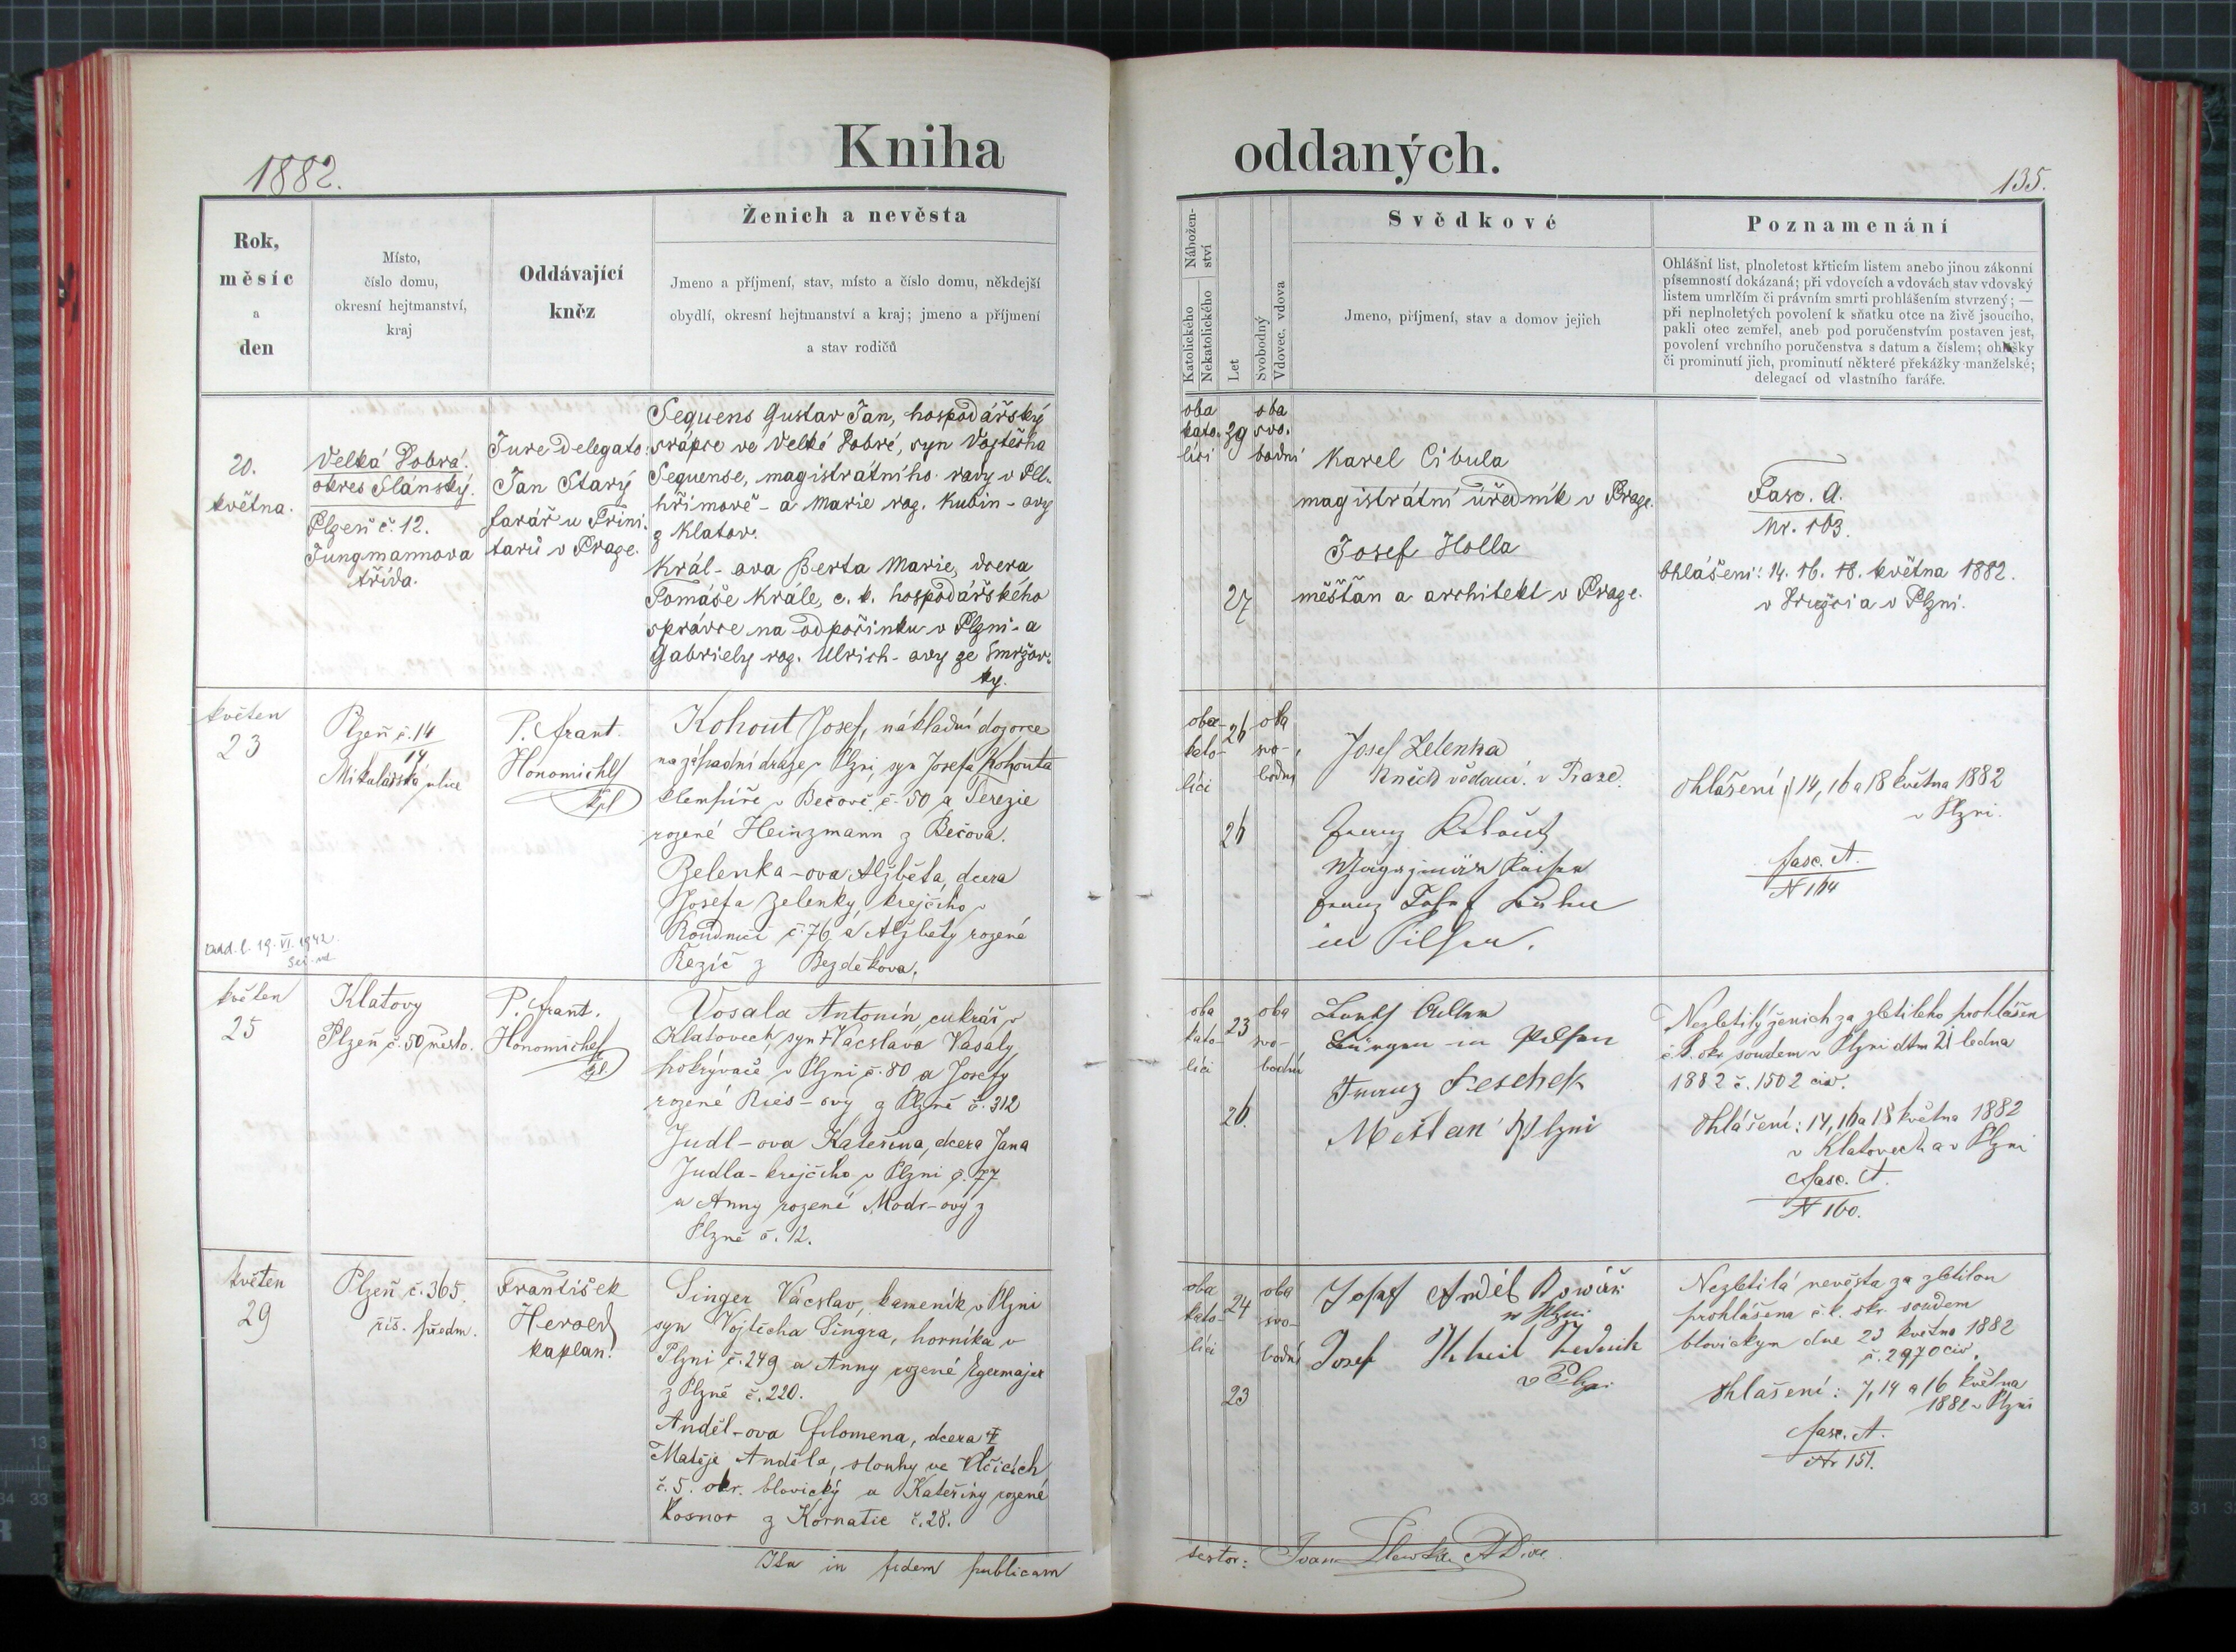 Kniha oddaných.
1882.
135.
Rok,
měsíc
a
den
Místo,
číslo domu,
okresní hejtmanství,
kraj
Oddávající
kněz
Ženich a nevěsta
Jmeno a příjmení, stav, místo a číslo domu, někdejší
obydlí, okresní hejtmanství a kraj; jmeno a příjmení
a stav rodičů
Nábožen-
ství
Katolického
Nekatolického
Let
Svobodný
Vdovec, vdova
Svědkové
Jmeno, příjmení, stav a domov jejich
Poznamenání
Ohlášní list, plnoletost křticím listem anebo jinou zákonní
písemností dokázaná; při vdovcích a vdovách stav vdovský
listem umrlčím či právním smrti prohlášením stvrzený; —
při neplnoletých povolení k sňatku otce na živě jsoucího,
pakli otec zemřel, aneb pod poručenstvím postaven jest,
povolení vrchního poručenstva s datum a číslem; ohlášky
či prominutí jich, prominutí některé překážky manželské;
delegací od vlastního faráře.
20.
května.
Velká Dobrá.
okres Slánský.
Plzeň č. 12.
Jungmannova
třída.
Jure delegato:
Jan Starý
farář u Trini-
tarů v Praze.
Sequens Gustav Jan, hospodářský
správce ve Velké Dobré, syn Vojtěcha
Sequense, magistrátního rady v Pel-
hřimově - a Marie roz. Kubin-ovy
z Klatov.
Král-ova Berta Marie, dcera
Tomáše Krále, c. k. hospodářského
správce na odpočinku v Plzni - a
Gabriely roz. Ulrich-ovy ze Smržov-
ky.
oba
kato-
líci
29
27
oba
svo-
bodní
Karel Cibula
magistrátní úředník v Praze.
Josef Holla
měšťan a architekt v Praze.
Fasc. A.
Nr. 163.
Ohlášení: 14. 16. 18. května 1882.
v Plzni.
květen
23
Plzeň č. 14
14
Mikulášská ulice
P. Frant.
Honomichl
kpl
Kohout Josef, nákladní dozorce
na západní dráze v Plzni, syn Josefa Kohouta
klempíře v Bečově č. 50 a Terezie
rozené Heinzmann z Bečova.
Zelenka-ova Alžběta, dcera
Josefa Zelenky, krejčího v
Roudnici č. 76, a Alžběty rozené
Řezíč z Bezděkova.
19. VI. 1942
oba
kato-
líci
26
26
oba
svo-
bodní
Josef Zelenka
v Praze.
Franz
Franz Josef
in Pilsen.
Ohlášení: 14, 16 a 18 května 1882
v Plzni.
fasc. A.
N 164
květen
25
Klatovy
Plzeň č. 50 město.
P. Frant.
Honomichl
kpl
Vosala Antonín, cukrář v
Klatovech syn † Vácslava Vasaly
pokrývače v Plzni č. 80 a Josefy
rozené Ries-ovy z Plzně č. 312
Judl-ova Kateřina, dcera Jana
Judla - krejčího v Plzni č. 77
a Anny rozené Modr-ovy z
Plzně č. 12.
oba
kato-
líci
23
26.
oba
svo-
bodní
in Pilsen
Franz Leschek
Mešťan v Plzni
Nezletilý ženich za zletilého prohlášen
c. k. okr. soudem v Plzni dtm 21 ledna
1882 č. 1502 civ.
Ohlášení: 14, 16 a 18 května 1882
v Klatovech a v Plzni
fasc. A.
N 160.
květen
29
Plzeň č. 365.
říš. předm.
František
Herold
kaplan.
Singer Vácslav, kameník v Plzni
syn Vojtěcha Singra, horníka v
Plzni č. 249 a Anny rozené Egermajer
z Plzně č. 220.
Anděl-ova Filomena, dcera †
Matěje Anděla, slouhy ve Vlčicích
č. 5. okr. blovický a Kateřiny rozené
Kosnar z Kornatic č. 28.
oba
kato-
líci
24
23
oba
svo-
bodní
Josef Anděl
w Plzni
Josef
v Plzni
Nezletilá nevěsta za zletilou
prohlášena c. k. okr. soudem
blovickým dne 23 května 1882
č. 2970 civ.
Ohlášení: 7, 14 a 16 května
1882 v Plzni
fasc. A.
Nr 151.
Ita in fidem publicam